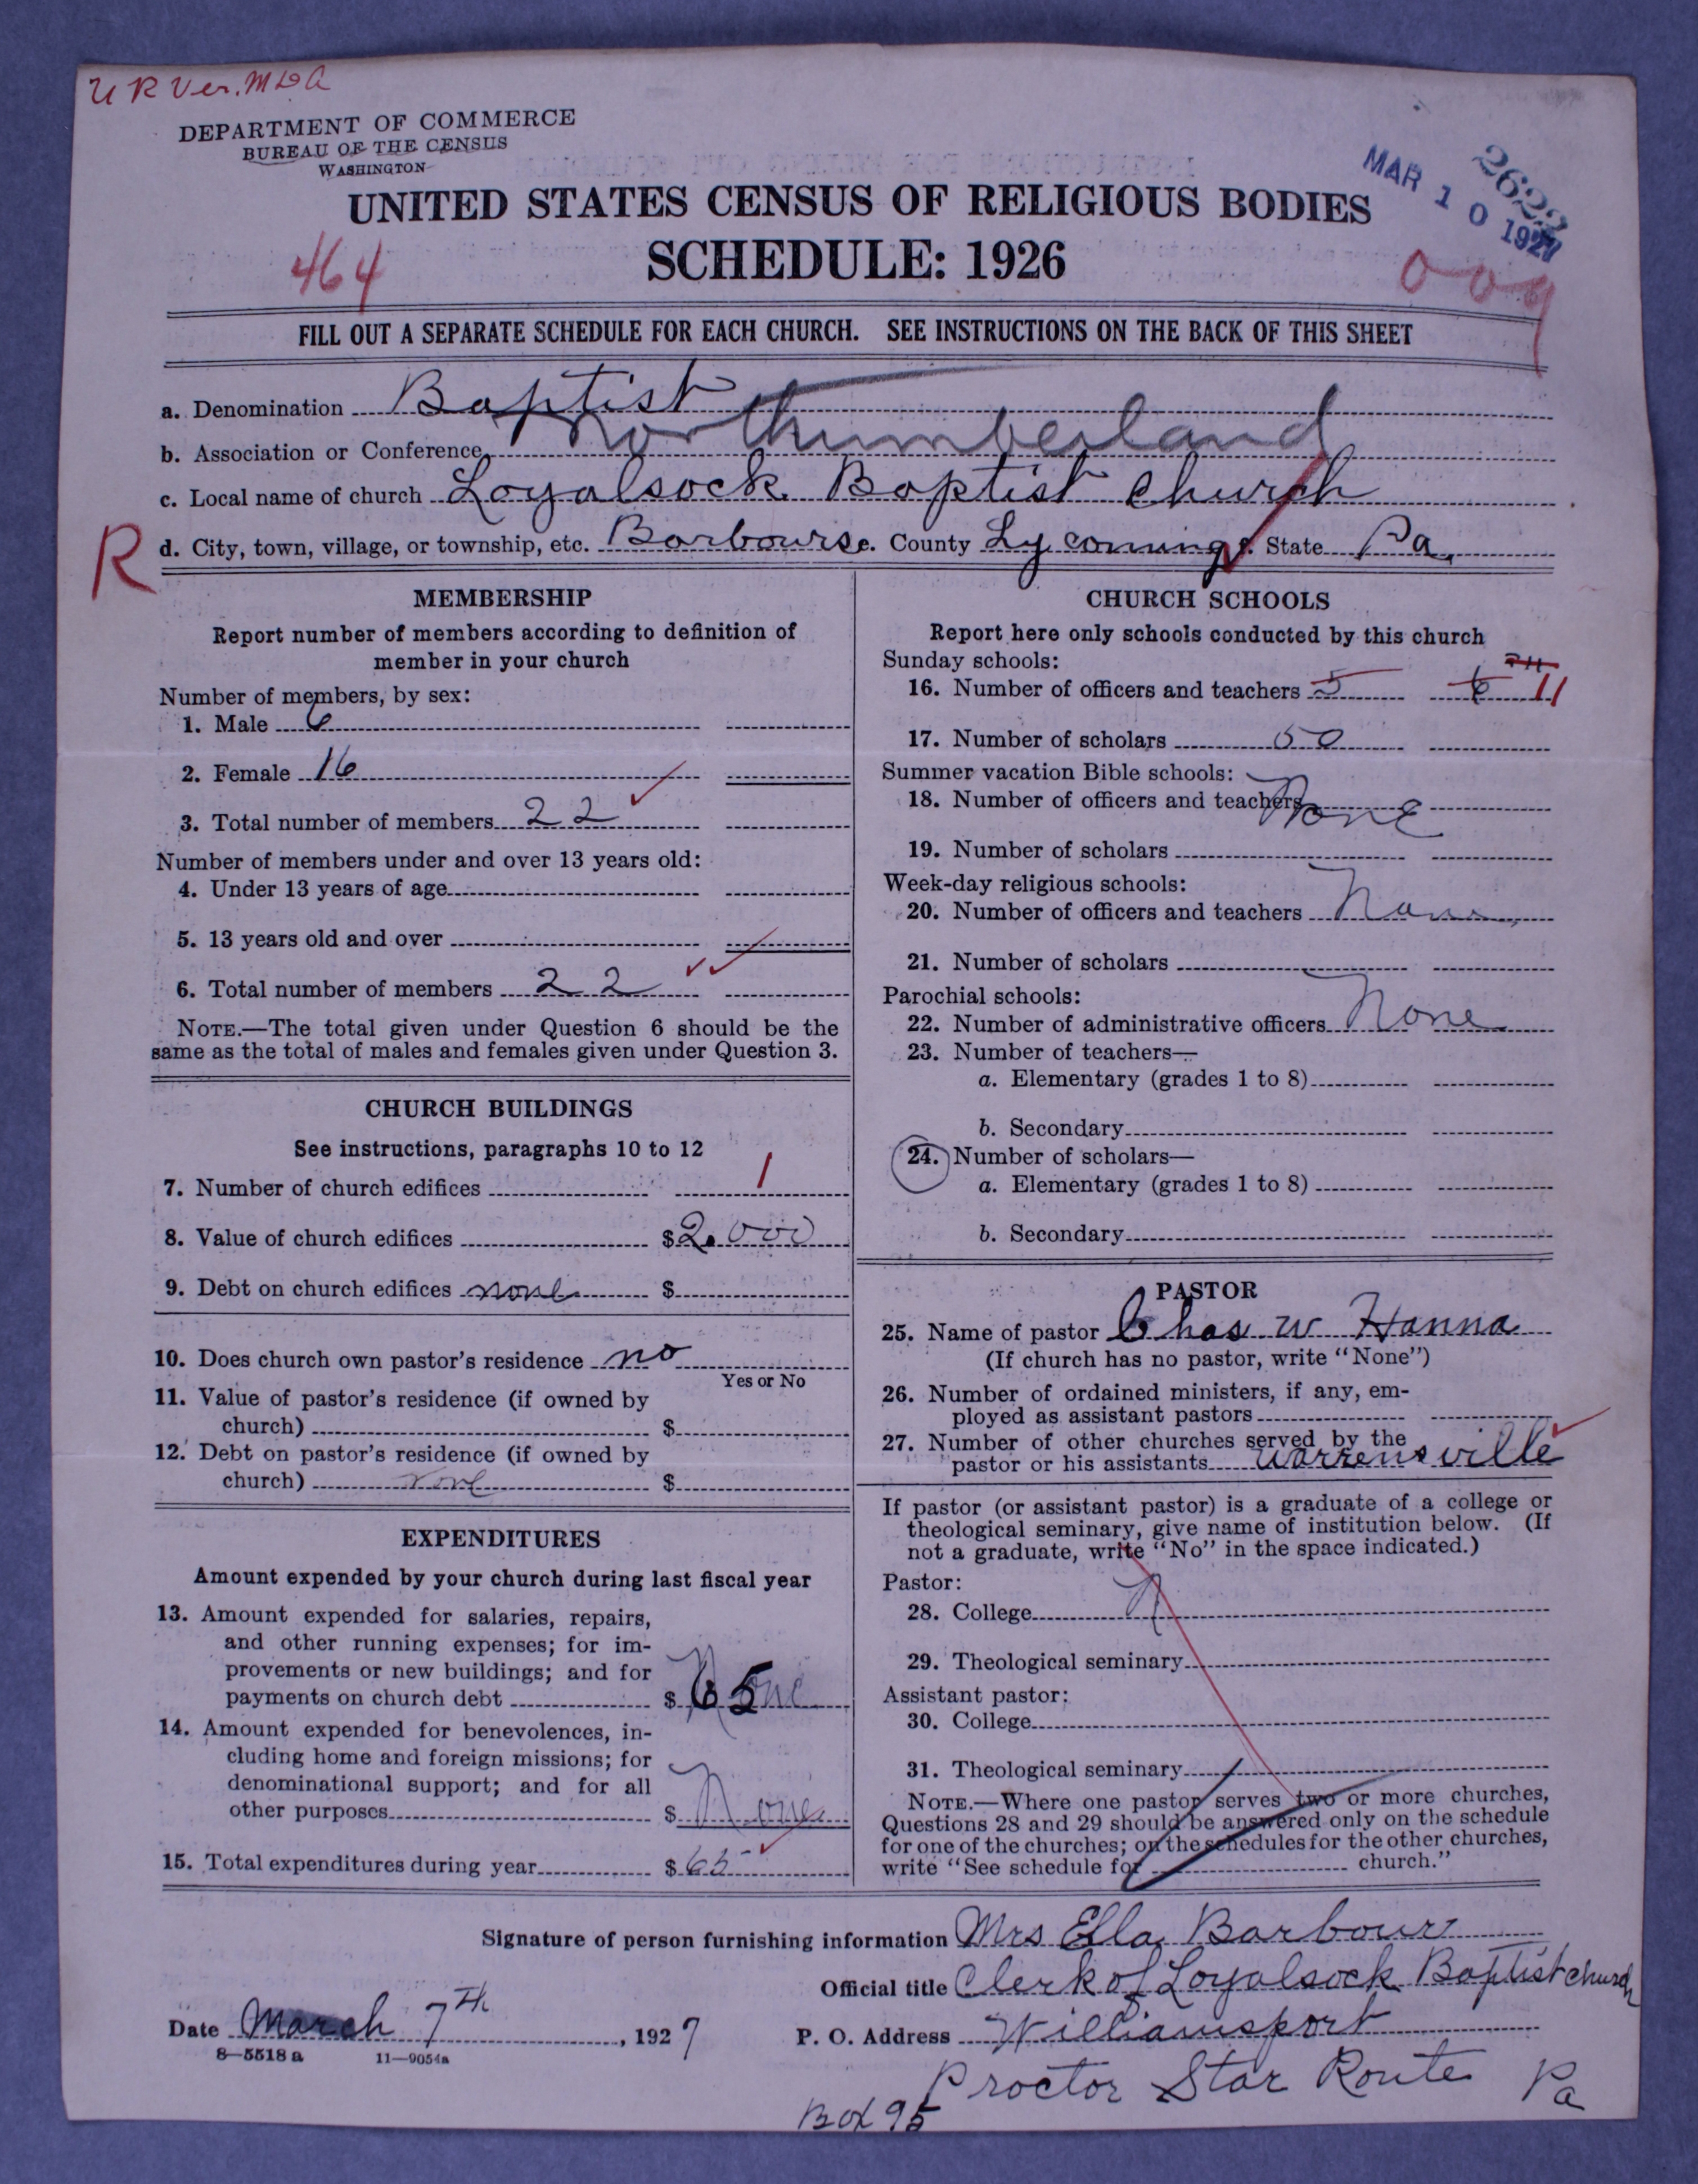 U R Ver. MDA
DEPARTMENT OF COMMERCE
BUREAU OF THE CENSUS
WASHINGTON
2622
MAR 10 1927
UNITED STATES CENSUS OF RELIGIOUS BODIES
464
SCHEDULE: 1926
009
FILL OUT A SEPARATE SCHEDULE FOR EACH CHURCH. SEE INSTRUCTIONS ON THE BACK OF THIS SHEET
a. Denomination Baptist
b. Association or Conference Northumberland
c. Local name of church Loyalsock Baptist Church
R
d. City, town, village, or township, etc. Barbours e. County Lycoming f. State Pa.
MEMBERSHIP
Report number of members according to definition of
member in your church
Number of members, by sex:
1. Male 6
2. Female 16
3. Total number of members 22
Number of members under and over 13 years old:
4. Under 13 years of age
5. 13 years old and over
6. Total number of members 22
NOTE.—The total given under Question 6 should be the
same as the total of males and females given under Question 3.
CHURCH BUILDINGS
See instructions, paragraphs 10 to 12
7. Number of church edifices 1
8. Value of church edifices $2.000
9. Debt on church edifices none $
10. Does church own pastor's residence no
Yes or No
11. Value of pastor's residence (if owned by
church) $
12. Debt on pastor's residence (if owned by
church) none $
EXPENDITURES
Amount expended by your church during last fiscal year
13. Amount expended for salaries, repairs,
and other running expenses; for im-
provements or new buildings; and for
payments on church debt $ None 65
14. Amount expended for benevolences, in-
cluding home and foreign missions; for
denominational support; and for all
other purposes $ None
15. Total expenditures during year $65
CHURCH SCHOOLS
Report here only schools conducted by this church
Sunday schools:
16. Number of officers and teachers 5 6 11
17. Number of scholars 50
Summer vacation Bible schools:
18. Number of officers and teachers None
19. Number of scholars
Week-day religious schools:
20. Number of officers and teachers None
21. Number of scholars
Parochial schools:
22. Number of administrative officers None
23. Number of teachers—
a. Elementary (grades 1 to 8)
b. Secondary
24. Number of scholars—
a. Elementary (grades 1 to 8)
b. Secondary
PASTOR
25. Name of pastor Chas W Hanna
(If church has no pastor, write "None")
26. Number of ordained ministers, if any, em-
ployed as assistant pastors
27. Number of other churches served by the
pastor or his assistants Warrensville
If pastor (or assistant pastor) is a graduate of a college or
theological seminary, give name of institution below. (If
not a graduate, write "No" in the space indicated.)
Pastor:
28. College N
29. Theological seminary
Assistant pastor:
30. College
31. Theological seminary
NOTE.—Where one pastor serves two or more churches,
Questions 28 and 29 should be answered only on the schedule
for one of the churches; on the schedules for the other churches,
write "See schedule for church."
Signature of person furnishing information Mrs Ella Barbour
Official title Clerk of Loyalsock Baptist church
Date March 7th, 1927
P. O. Address Williamsport
8—5518a 11—9054a
Proctor Star Route Pa
Box 95